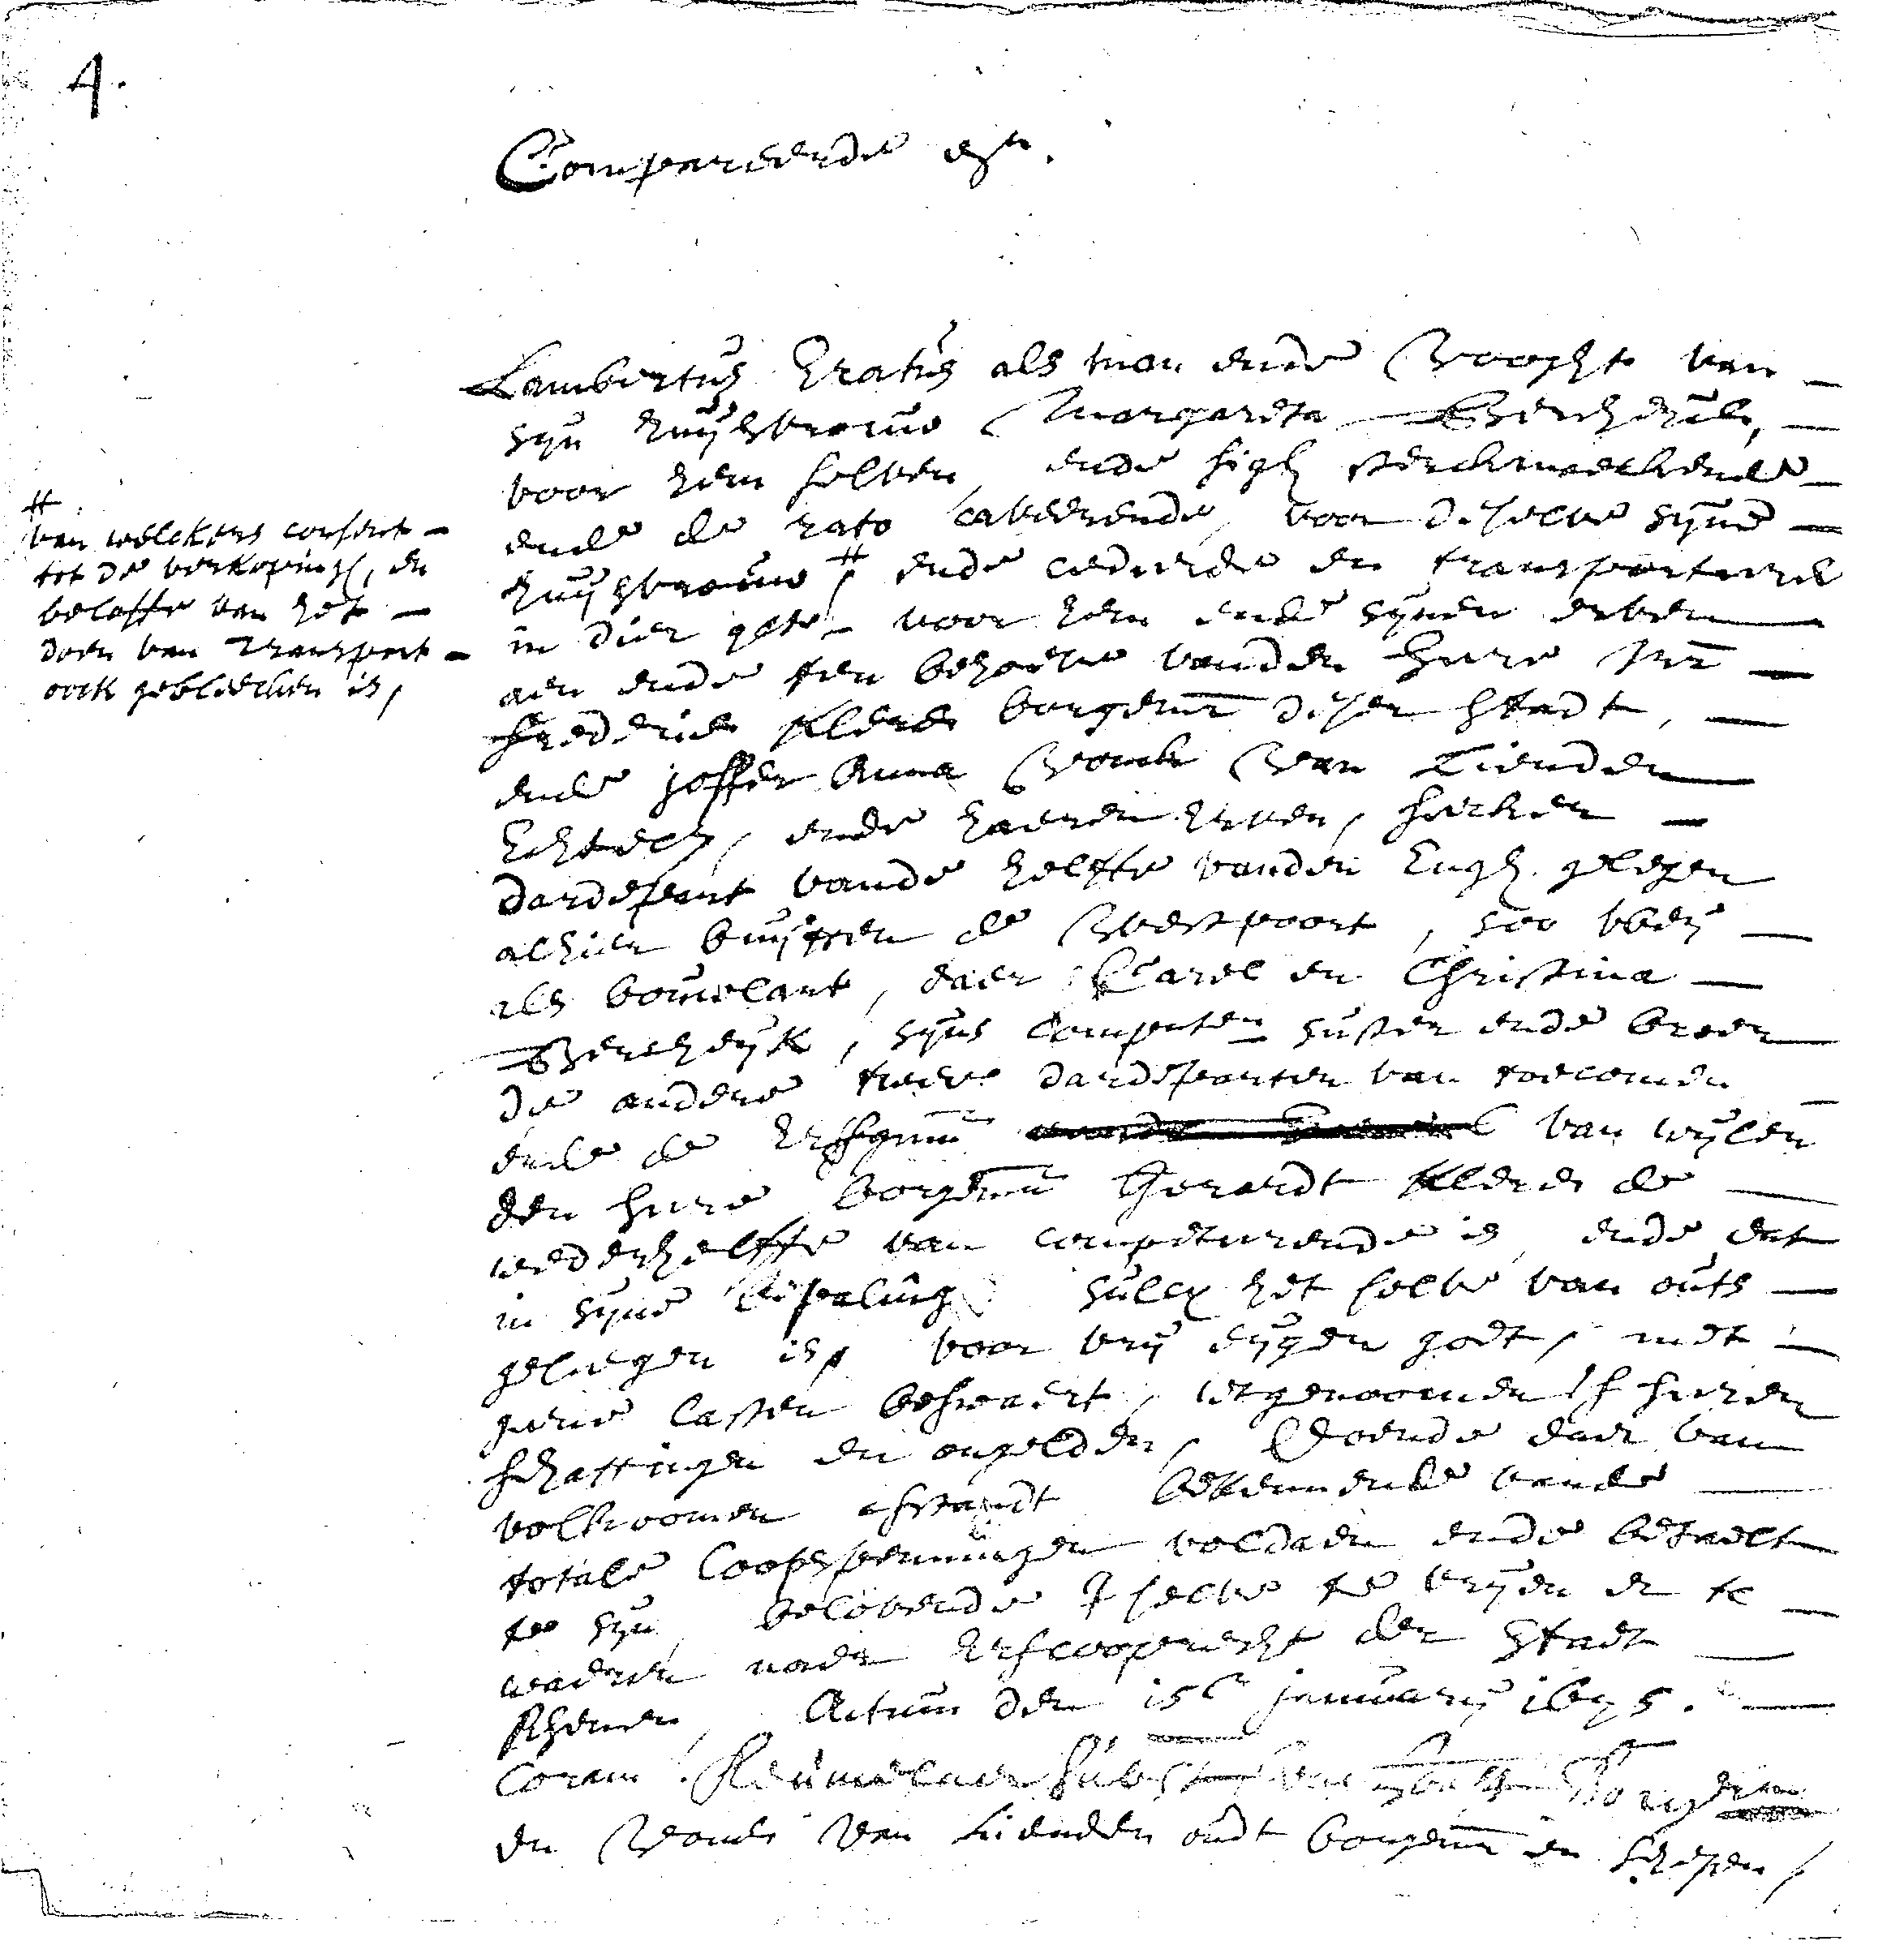 4.
Compareerde etc.
Lambertus Eratus als man ende Vooght van
sijn huijsvrouwe Margareta
voor hem selven, ende sigh sterckmaeckende
ende de rato caverende, voor deselve sijne
huijsvrouwe # ende cedeerde en transporteerde
in dier gest. voor hem ende sijnen erven
aen ende ten behoeve vanden Heere
Frederick borgemr deser Stadt,
ende joffer Anna Vonck Van Lienden
Echteel, ende haeren erven, seecker
dardepart vande helffte vanden Engh gelegen
alhier buijten de Westpoort, soo weij
als bouwlant, daer Carel en Christina
sijns Compten suster ende broer
de andere twee dardeparten van toecomen
ende de Erffgnm van wijlen
den heere borgemr Gerardt de
wederhelffte van competeerende is, ende dat
in sijne bepaling sulcx het selve van outs
gelegen is, voor vrij eijgen goet, met
geene lasten beswaert, uitgenoomen 's heeren
schattingen en ongelden, Doende daer van
volkoomen afstandt bekennende vande
totale Cooppenningen voldaen ende betaelt
te sijn, belovende 't selve te vrijen en te
waeren naer Erfcooprecht der Stadt
Rhenen, Actum den 15e januarij 1695.
Coram Borgem
en Vonck Van Lienden oudt borgemr en schepen,
#
van welckers consent
tot de verkopingh, en
belofte van het
doen van Transport
oock gebleecken is,